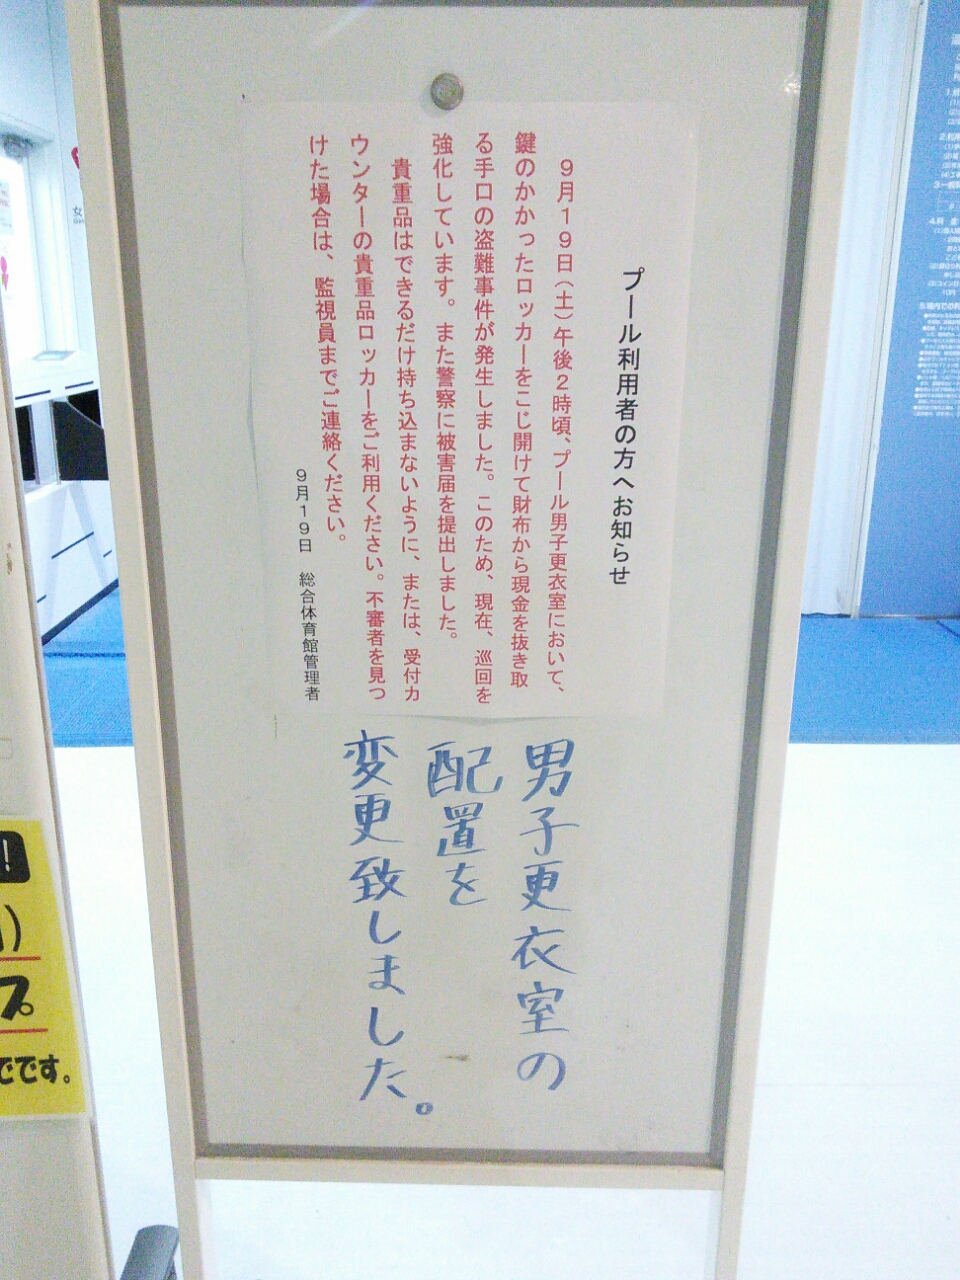 プール利用者の方へお知らせ
9月19日(土)午後2時頃、プール男子更衣室において、
鍵のかかったロッカーをこじ開けて財布から現金を抜き取
る手口の盗難事件が発生しました。このため、現在、巡回を
強化しています。また警察に被害届を提出しました。
貴重品はできるだけ持ち込まないように、または、受付カ
ウンターの貴重品ロッカーをご利用ください。不審者を見つ
けた場合は、監視員までご連絡ください。
9月19日 総合体育館管理者
男子更衣室の
配置を
変更致しました。
!
プ。
でです。
女